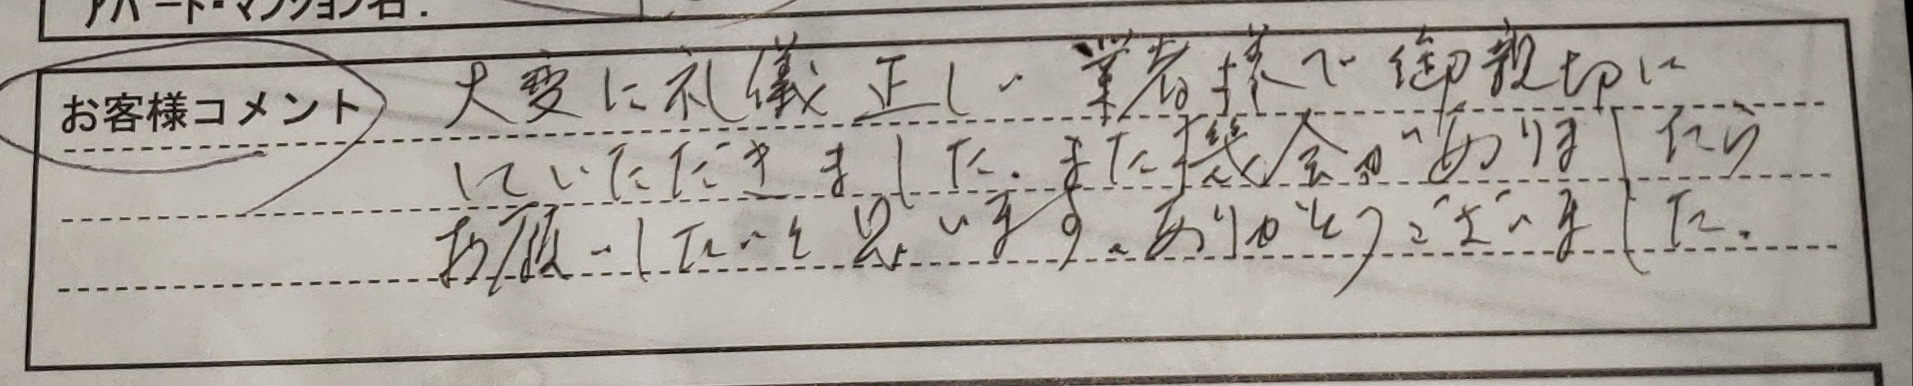 アパート・マンション名:
お客様コメント
大変に礼儀正しい業者様で御親切に
していただきました。また機会がありましたら
お願いしたいと思います。ありがとうございました。